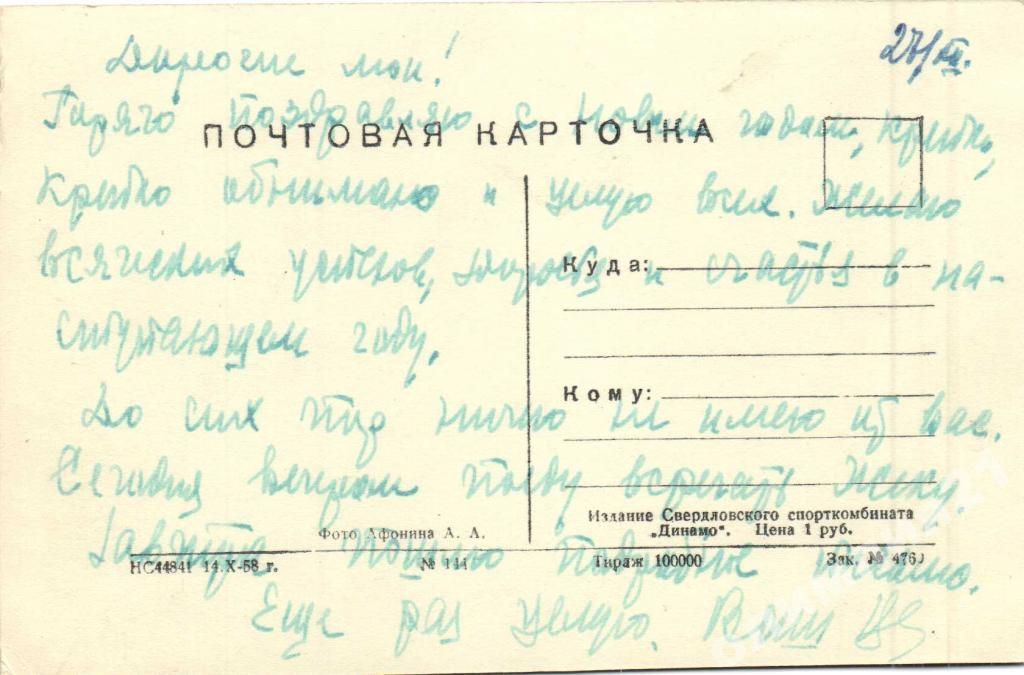 27/XII.
Дорогие мои!
Горячо поздравляю с Новым годом, крепко,
ПОЧТОВАЯ КАРТОЧКА
крепко обнимаю и целую всех. Желаю
всяческих успехов, здоровья и счастья в на-
Куда:
ступающем году.
Кому:
До сих пор ничего не имею от вас.
Сегодня вечером поеду встречать
Издание Свердловского спорткомбината
„Динамо“. Цена 1 руб.
Фото Афонина А. А.
Завтра пошлю подробное письмо.
НС44841 14.X-58 г. № 144 Тираж 100000 Зак. № 4760
Еще раз целую. Ваш